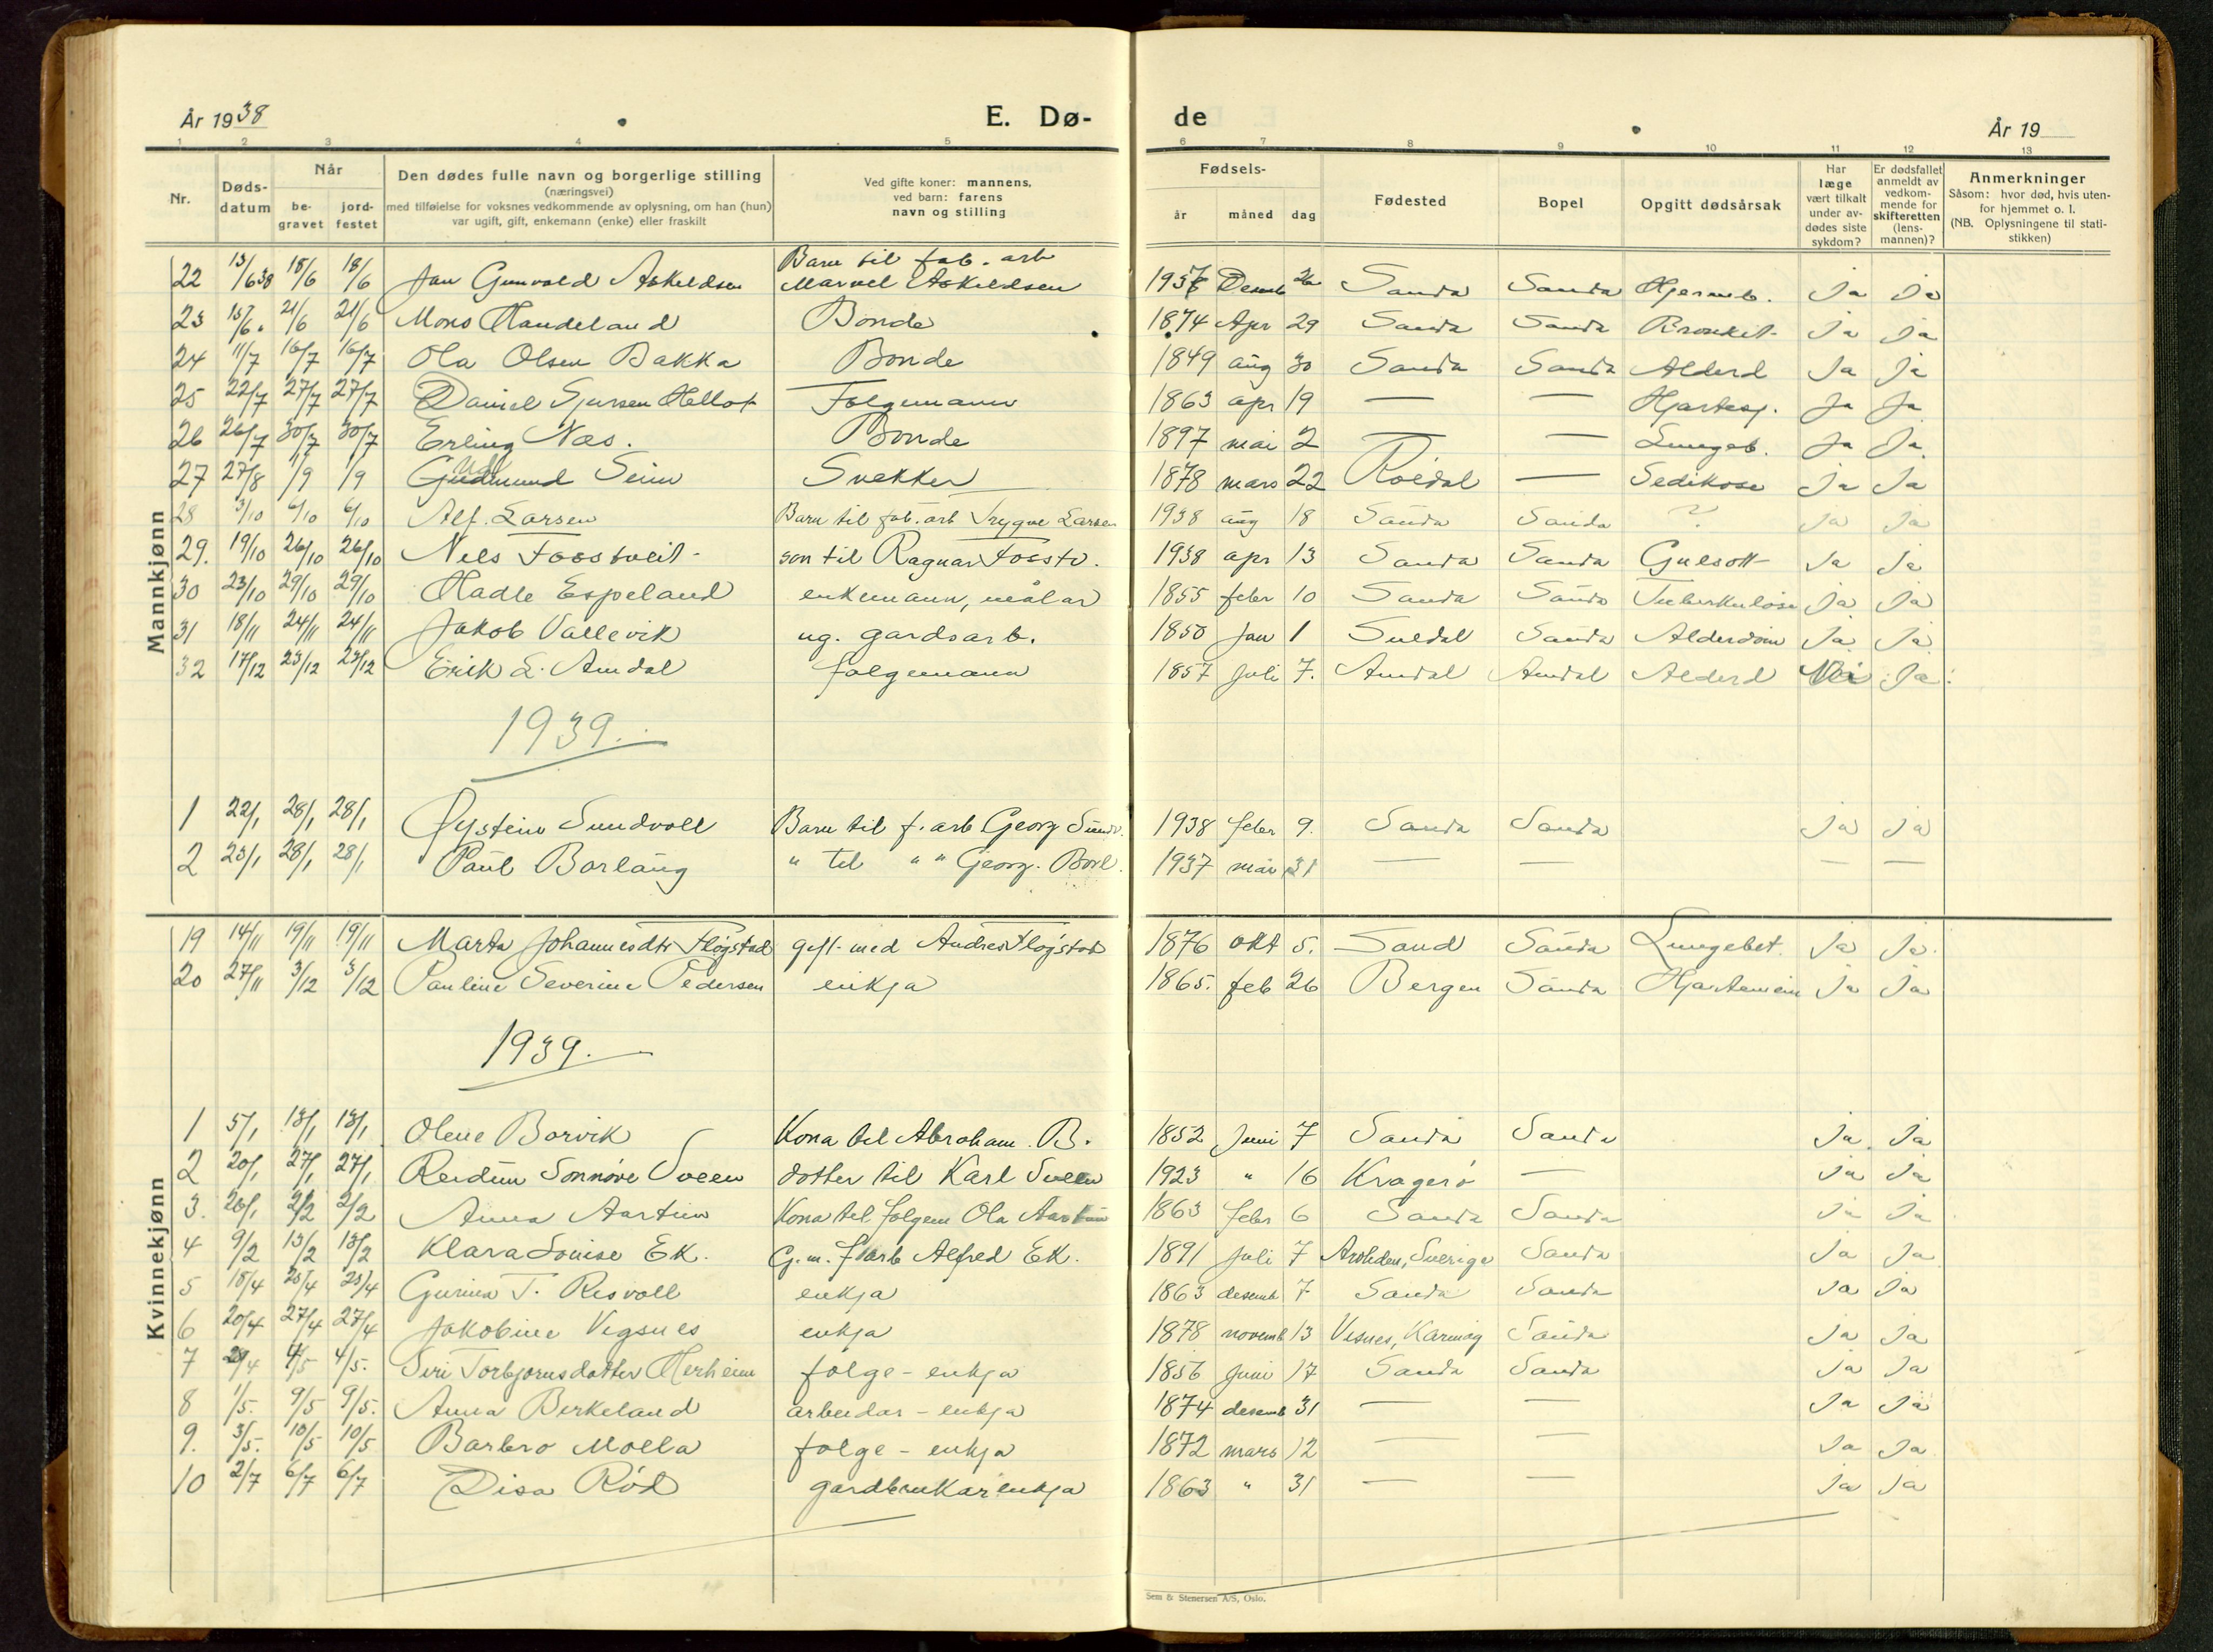 År 1938
E. Dø-
de
År 19
1 2 3 4 5 6 7 8 9 10 11 12 13
Nr.
Døds-datum
Når
be-gravet
jord-festet
Den dødes fulle navn og borgerlige stilling
(næringsvei)
med tilføielse for voksnes vedkommende av oplysning, om han (hun)
var ugift, gift, enkemann (enke) eller fraskilt
Ved gifte koner: mannens,
ved barn: farens
navn og stilling
Fødsels-
år måned dag
Fødested
Bopel
Opgitt dødsårsak
Har læge vært tilkalt under av-dødes siste sykdom?
Er dødsfallet anmeldt av vedkom-mende for skifteretten (lens-mannen)?
Anmerkninger
Såsom: hvor død, hvis uten-
for hjemmet o. l.
(NB. Oplysningene til stati-
stikken)
Mannkjønn
Barn til fab. arb
22 13/6 38 18/6 18/6 Jan Gunvald Askeldsen Marvel Askeldsen 1937 Desemb 26 Sauda Sauda Hjerneb. Ja Ja
23 15/6. 21/6 21/6 Mons Handeland Bonde 1874 Apr 29 Sauda Sauda Bronkit. Ja Ja
24 11/7 16/7 16/7 Ola Olsen Bakka Bonde 1849 aug 30 Sauda Sauda Alderd Ja Ja
25 22/7 27/7 27/7 Daniel Sjursen Folgemann 1863 apr 19 — — Ja Ja
26 26/7 30/7 30/7 Erling Næs. Bonde 1897 mai 2 — — Lungeb. Ja Ja
27 27/8 1/9 1/9 Gudmund Seim Snekker 1878 mars 22 Røldal — Ja Ja
28 3/10 6/10 6/10 Alf. Larsen Barn til fab. arb Trygve Larsen 1938 aug 18 Sauda Sauda ? Ja Ja
29. 19/10 26/10 26/10 Nils Fosstveit son til Ragnar Fosstv. 1938 apr 13 Sauda Sauda Gulsott Ja Ja
30 23/10 29/10 29/10 Hadle Espeland enkemann, målar 1855 febr 10 Sauda Sauda Tuberkulose Ja Ja
31 18/11 24/11 24/11 Jakob Vallevik ug. gardsarb. 1850 Jan 1 Suldal Sauda Alderdom Ja Ja
32 17/12 23/12 23/12 Erik L. Amdal folgemann 1857 Juli 7. Amdal Amdal Alderd Nei Ja.
1939.
1 22/1 28/1 28/1 Øystein Sundvoll Barn til f. arb Georg Sundv. 1938 febr 9. Sauda Sauda Ja Ja
2 23/1 28/1 28/1 Paul Borlaug " til " " Georg. Borl. 1937 mai 31 — — — —
19 14/11 19/11 19/11 Marta Johannesdtr Fløgstad gift med Andres Fløgstad 1876 okt 5. Sand Sauda Lungebet. Ja Ja.
20 27/11 3/12 3/12 Pauline Severine Pedersen enkja 1865. feb 26 Bergen Sauda Ja Ja
1939.
Kvinnekjønn
1 5/1 13/1 13/1 Olene Borvik Kona til Abraham. B. 1852 Juni 7 Sauda Sauda Ja Ja
2 20/1 27/1 27/1 Reidun Sonnøve Sveen dotter til Karl Sveen 1923 " 16 Kragerø — Ja Ja
3. 26/1 2/2 2/2 Anna Aartun Kona til folgem Ola Aartun 1863 febr 6 Sauda Sauda Ja Ja
4 9/2 13/2 13/2 Klara Louise Ek. G.m. f.arb Alfred Ek. 1891 Juli 7 Sverige Sauda Ja Ja
5 18/4 25/4 25/4 T. Risvoll enkja 1863 desemb 7 Sauda Sauda Ja Ja
6 20/4 27/4 27/4 Jakobine Vigsnes enkja 1878 novemb 13 Visnes, Karmøy Sauda Ja Ja
7 29/4 4/5 4/5. Siri Torbjørnsdotter Herheim folge - enkja 1856 Juni 17 Sauda Sauda Ja Ja
8 1/5. 9/5 9/5. Anna Birkeland arbeidar - enkja 1874 desemb 31 — — Ja Ja
9. 3/5. 10/5 10/5 Barbro Moella folge - enkja 1872 mars 12 — — Ja Ja
10 2/7 6/7 6/7 Disa Rød gardbrukarenkja 1863 " 31 — — Ja Ja
Sem & Stenersen A/S, Oslo.